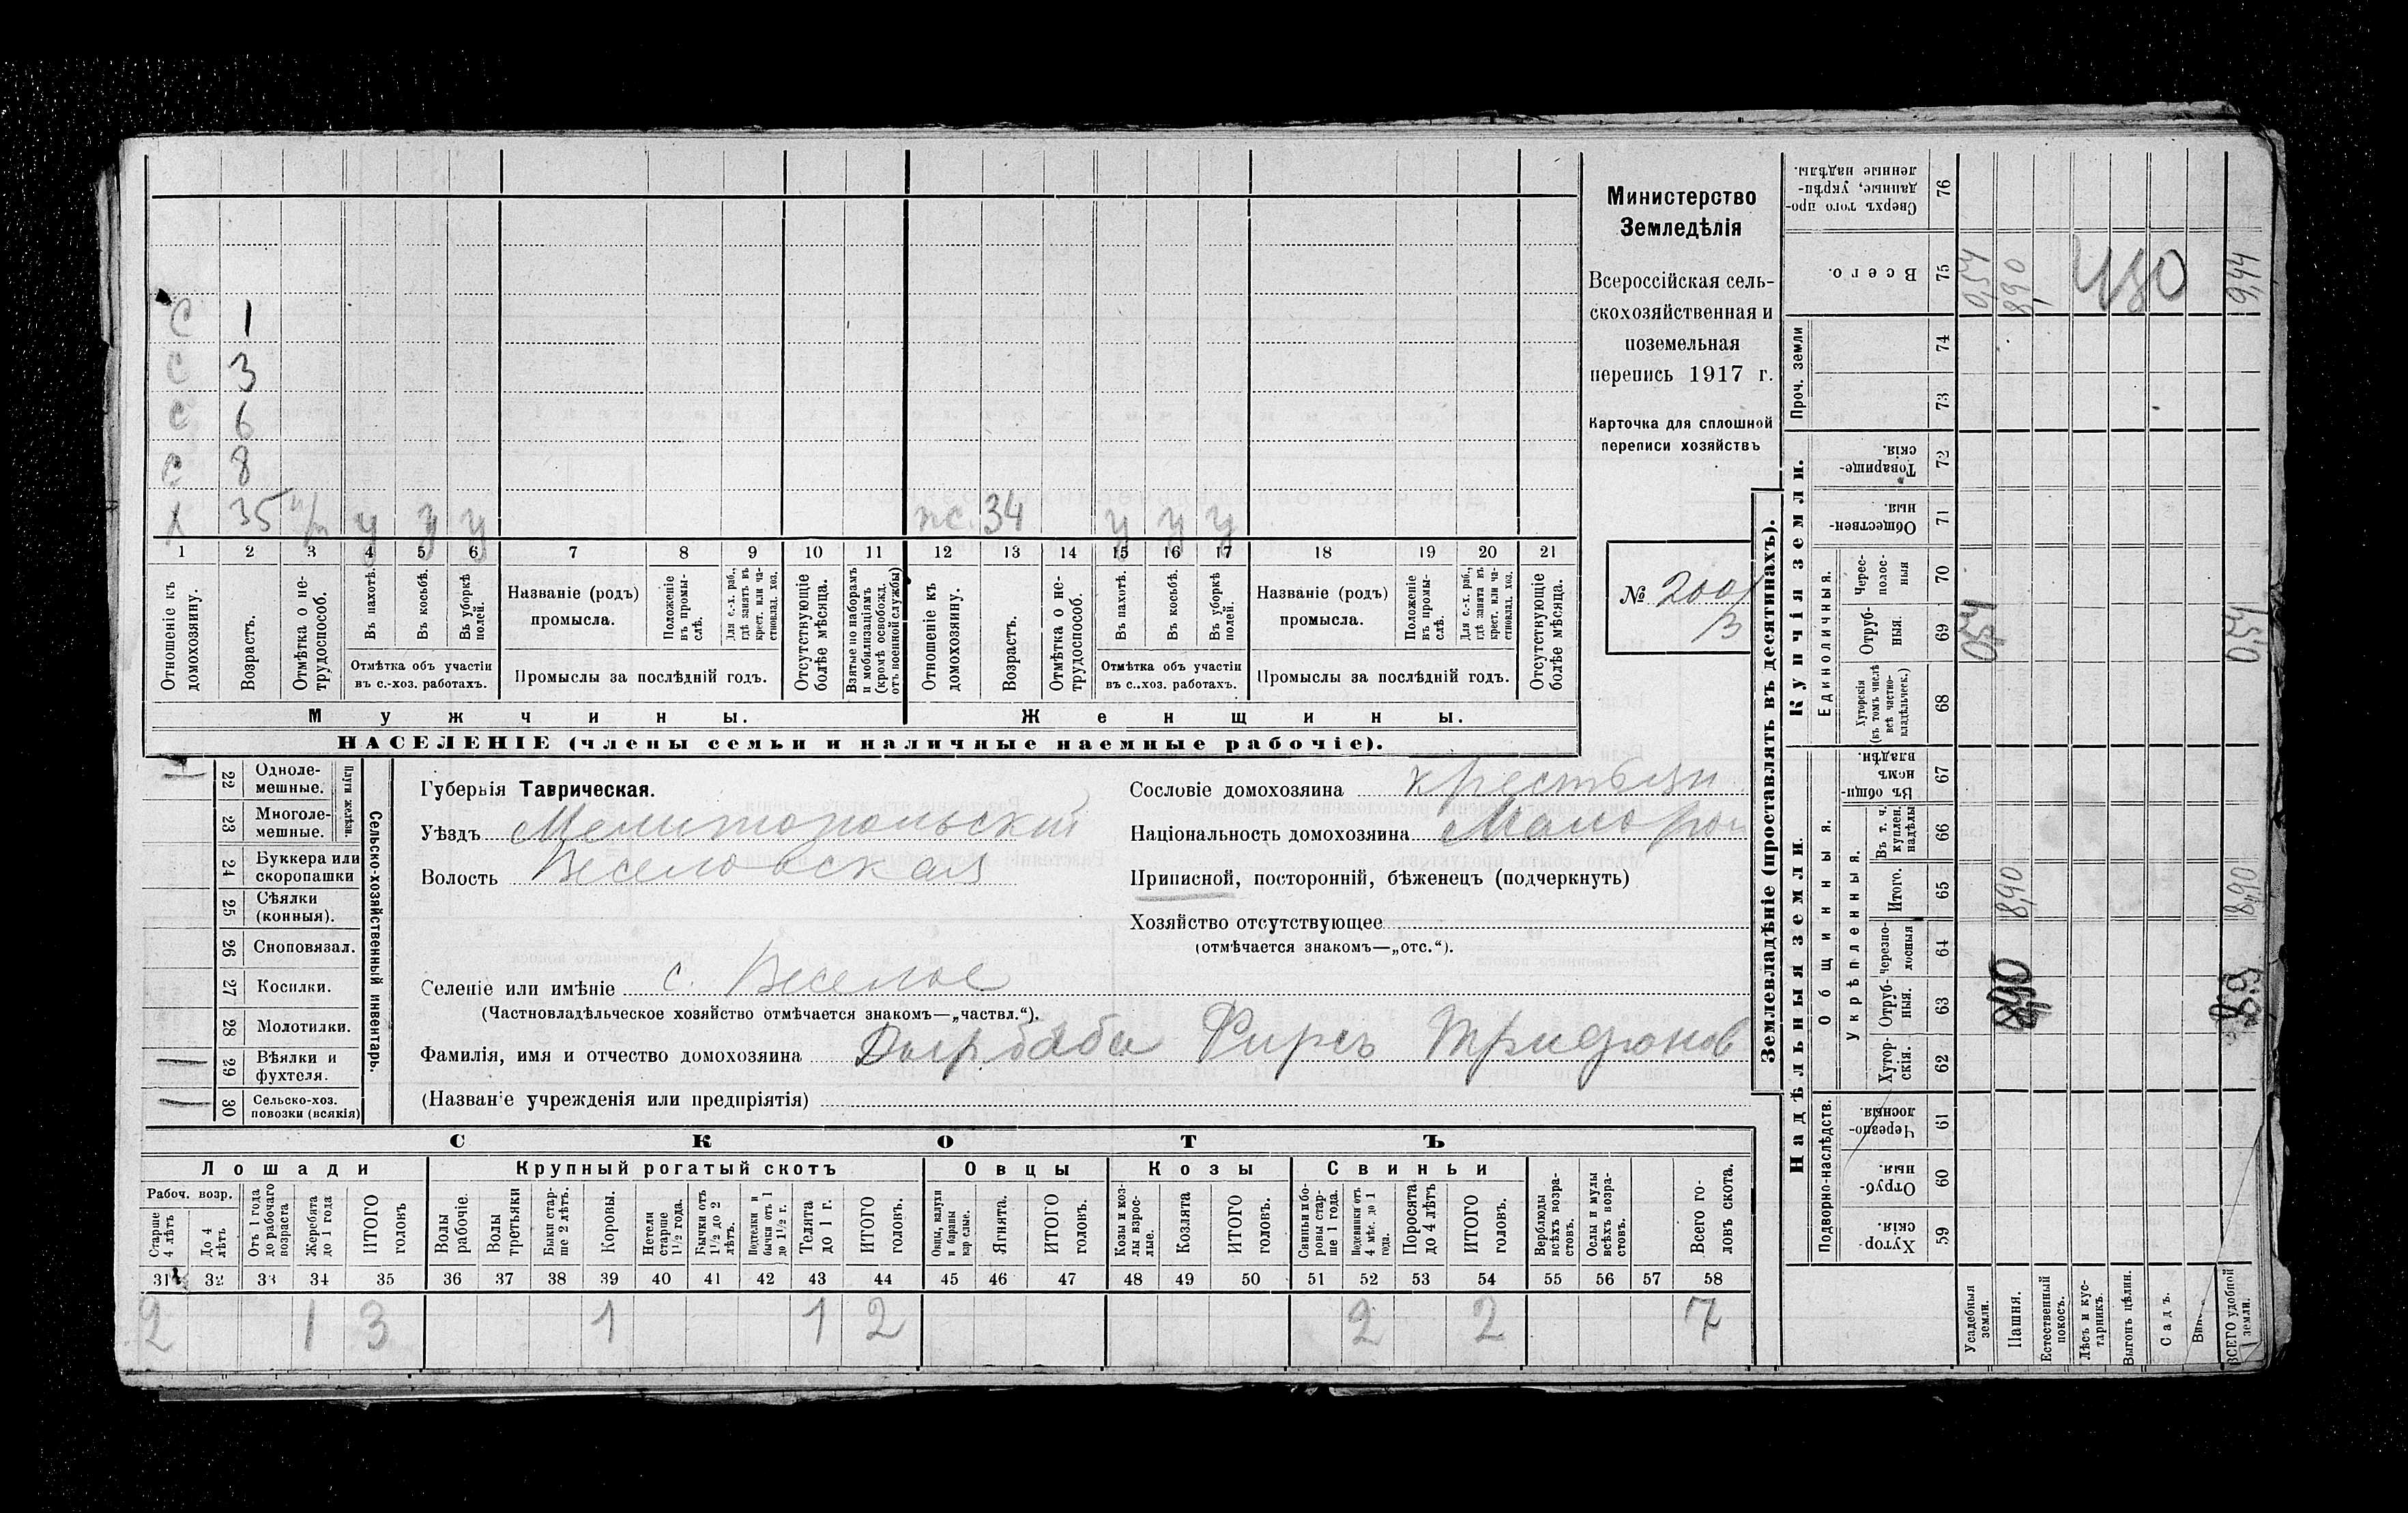 Министерство
Земледѣлія
Всероссійская сель-
скохозяйственная и
поземельная
перепись 1917 г.
Карточка для сплошной
переписи хозяйствъ
№ 2001
13
с 1
с 3
с 6
с 8
х 35 у у у ж. 34 у у у
1 2 3 4 5 6 7 8 9 10 11 12 13 14 15 16 17 18 19 20 21
Отношеніе къ домохозяину.
Возрастъ.
Отмѣтка о не-трудоспособ.
Въ пахотѣ.
Въ косьбѣ.
Въ уборкѣ полей.
Отмѣтка объ участіи
въ с.-хоз. работахъ.
Названіе (родъ)
промысла.
Положеніе въ промы-слѣ.
Для с.-х. раб., гдѣ занятъ въ крест. или ча-стновлад. хоз.
Промыслы за послѣдній годъ.
Отсутствующіе болѣе мѣсяца.
Взятые по наборамъ и мобилизаціямъ (кромѣ освобожд. отъ военной службы)
Отношеніе къ домохозяину.
Возрастъ.
Отмѣтка о не-трудоспособ.
Въ пахотѣ.
Въ косьбѣ.
Въ уборкѣ полей.
Отмѣтка объ участіи
въ с.-хоз. работахъ.
Названіе (родъ)
промысла.
Положеніе въ промы-слѣ.
Для с.-х. раб., гдѣ занята въ крест. или ча-стновлад. хоз.
Промыслы за послѣдній годъ.
Отсутствующіе болѣе мѣсяца.
Мужчины. Женщины.
НАСЕЛЕНІЕ (члены семьи и наличные наемные рабочіе).
Сельско-хозяйственный инвентарь.
Плуги желѣзн.
22 Одноле-мешные.
23 Многоле-мешные.
24 Буккера или скоропашки
25 Сѣялки (конныя).
26 Сноповязал.
27 Косилки.
28 Молотилки.
1 29 Вѣялки и фухтеля.
1 30 Сельско-хоз. повозки (всякія)
Губернія Таврическая.
Уѣздъ Мелитопольскій
Волость Веселовская
Сословіе домохозяина крестьян
Національность домохозяина Малорос
Приписной, посторонній, бѣженецъ (подчеркнуть)
Хозяйство отсутствующее
(отмѣчается знакомъ—„отс.“).
Селеніе или имѣніе с. Веселое
(Частновладѣльческое хозяйство отмѣчается знакомъ—„частвл.“).
Фамилія, имя и отчество домохозяина Дырбаба Фирсъ Трифонов
(Названіе учрежденія или предпріятія)
СКОТЪ
Лошади Крупный рогатый скотъ Овцы Козы Свиньи
Рабоч. возр.
Старше 4 лѣтъ
До 4 лѣтъ
Отъ 1 года до рабочаго возраста
Жеребята до 1 года
ИТОГО головъ
Волы рабочіе.
Волы третьяки
Быки стар-ше 2 лѣтъ.
Коровы.
Нетели старше 1½ года.
Бычки отъ 1½ до 2 лѣтъ.
Подтелки и бычки отъ 1 до 1½ г.
Телята до 1 г.
ИТОГО головъ.
Овцы, валухи и бараны взрослые.
Ягнята.
ИТОГО головъ.
Козы и коз-лы взрос-лые.
Козлята
ИТОГО головъ.
Свиньи и бо-ровы стар-ше 1 года.
Подсвинки отъ 4 мѣс. до 1 года.
Поросята до 4 лѣтъ
ИТОГО головъ.
Верблюды всѣхъ возра-стовъ.
Ослы и мулы всѣхъ возра-стовъ.
Всего го-ловъ скота.
31 32 33 34 35 36 37 38 39 40 41 42 43 44 45 46 47 48 49 50 51 52 53 54 55 56 57 58
2 1 3 1 1 2 2 2 7
Землевладѣніе (проставлять въ десятинахъ).
Надѣльныя земли. Купчія земли. Проч. земли
Подворно-наслѣдств.
Общинныя.
Укрѣпленныя.
Единоличныя.
Хутор-скія. 59
Отруб-ныя. 60
Черезпо-лосныя 61
Хутор-скія. 62
Отруб-ныя. 63
Черезпо-лосныя 64
Итого. 65
Въ т. ч. куплен. надѣлы 66
Въ общи-номъ владѣн. 67
Хуторскія (въ томъ числѣ всѣ частно-владѣльческ.) 68
Отруб-ныя. 69
Черес-полос-ныя 70
Обществен-ныя. 71
Товарище-скія. 72
73
74
Всего. 75
Сверхъ того про-данные, укрѣп-ленные надѣлы. 76
Усадебныя земли. 0,54 0,54
Пашня. 8,90 8,90 8,90
Естественный покосъ.
Лѣсъ и кус-тарникъ.
Выгонъ цѣлин.
Садъ.
ВСЕГО удобной земли. 8,9 8,90 0,54 9,44